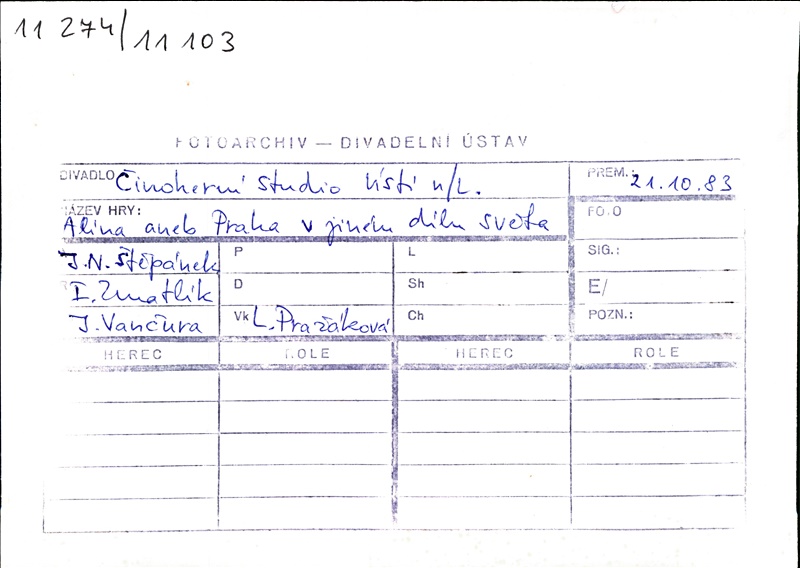 11 274/11 103
FOTOARCHIV — DIVADELNÍ ÚSTAV
DIVADLO Činoherní studio Ústí n/L.
PREM.: 21.10.83
NÁZEV HRY:
Alina aneb Praha v jiném dílu světa
FOTO
J.N. Štěpánek P L SIG.:
I. Zmatlík D Sh E/
J. Vančura Vk L. Pražáková Ch POZN.:
HEREC ROLE HEREC ROLE